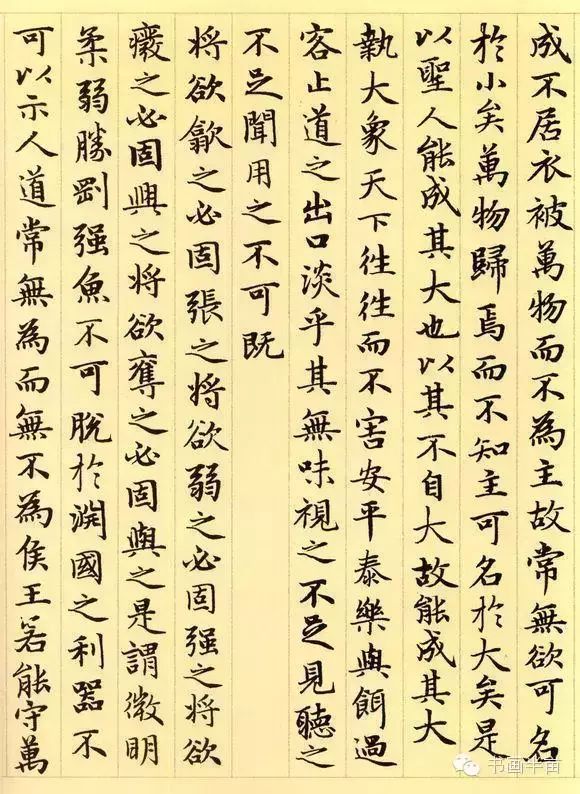 成不居衣被萬物而不為主故常無欲可名
於小矣萬物歸焉而不知主可名於大矣是
以聖人能成其大也以其不自大故能成其大
執大象天下往往而不害安平泰樂與餌過
客止道之出口淡乎其無味視之不足見聽之
不足聞用之不可既
将欲歙之必固張之将欲弱之必固强之将欲
癈之必固興之将欲奪之必固與之是謂微明
柔弱勝剛强魚不可脫於淵國之利器不
可以示人道常無為而無不為侯王若能守萬
书画半亩